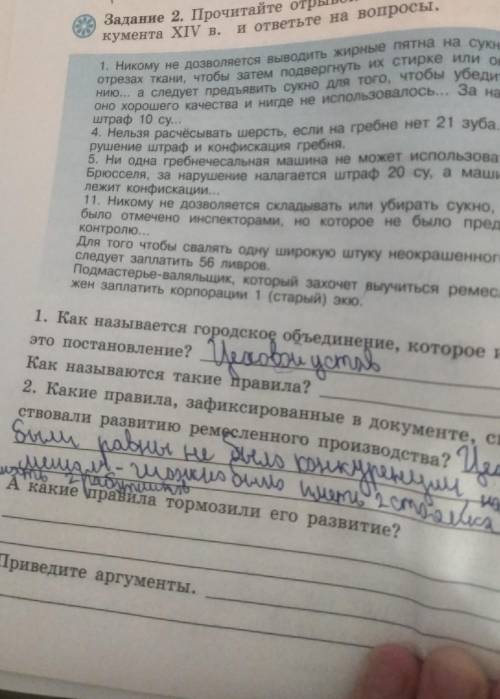 Задание 2. Прочитайте отрывок
кумента XIV в. и ответьте на вопросы.
1. Никому не дозволяется выводить жирные пятна на сукн
отрезах ткани, чтобы затем подвергнуть их стирке или
нию... а следует предъявить сукно для того, чтобы убедит
оно хорошего качества и нигде не использовалось... За на
штраф 10 су...
4. Нельзя расчёсывать шерсть, если на гребне нет 21 зуба.
рушение штраф и конфискация гребня.
5. Ни одна гребнечесальная машина не может использова
Брюсселя, за нарушение налагается штраф 20 су, а маши
лежит конфискации...
11. Никому не дозволяется складывать или убирать сукно,
было отмечено инспекторами, но которое не было пред
контролю...
Для того чтобы свалять одну широкую штуку неокрашенног
следует заплатить 56 ливров.
Подмастерье-валяльщик, который захочет выучиться ремес
жен заплатить корпорации 1 (старый) экю.
1. Как называется городское объединение, которое и
это постановление? Цеховой устав
Как называются такие правила?
2. Какие правила, зафиксированные в документе, сп
ствовали развитию ремесленного производства? Цех
были равны не было конкуренции
мешали - можно было иметь 2 станка
А какие правила тормозили его развитие?
Приведите аргументы.